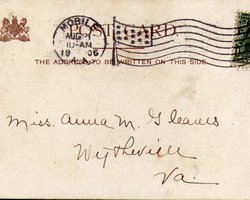 MOBILE
AUG
10-AM
1906
ALA.
POST CARD
THE ADDRESS TO BE WRITTEN ON THIS SIDE
Miss. Anna M. Gleaves
Wytheville
Va.